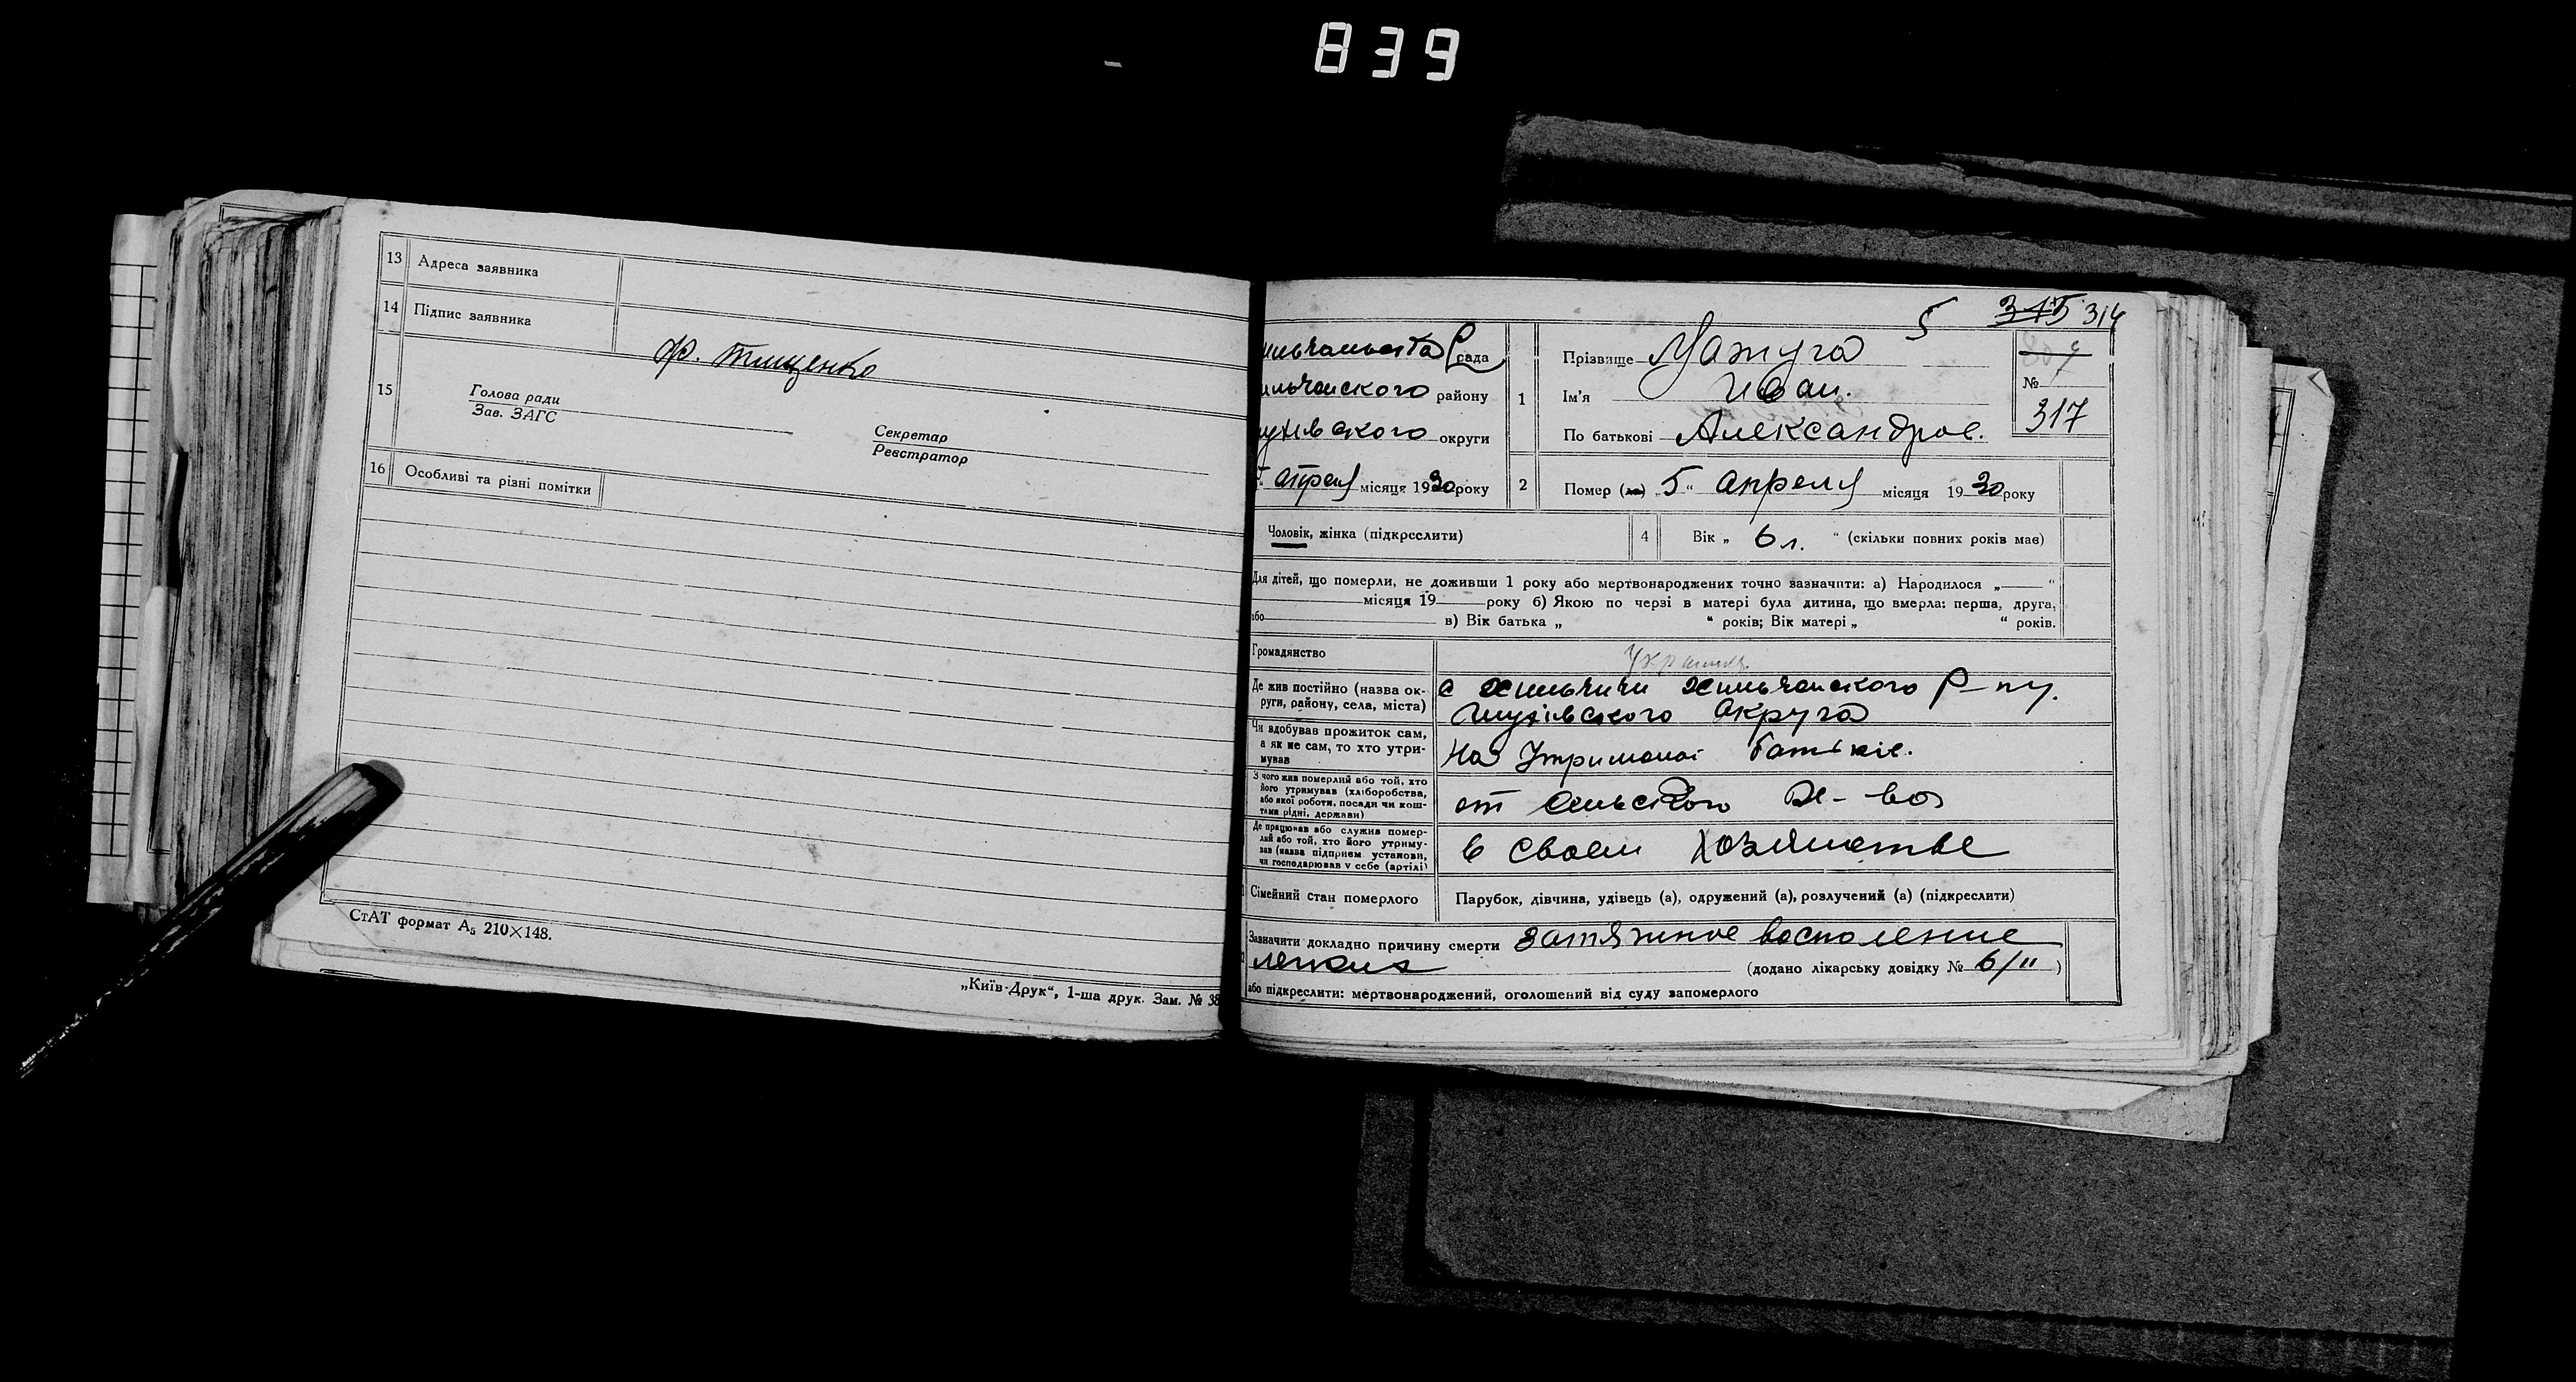 839
13 Адреса заявника
14 Підпис заявника
Ф. Тищенко
15 Голова ради
Зав. ЗАГС
Секретар
Реєстратор
16 Особливі та різні помітки
СтАТ формат А5 210×148.
„Київ-Друк“, 1-ша друк. Зам. № 38
5 315 316
рада
1 Прізвище Мажуга
№ 317
району
Ім'я Иван.
округи
По батькові Александров.
Апреля місяця 1930 року
2 Помер (ла) „5“ Апреля місяця 1930 року
Чоловік, жінка (підкреслити)
4 Вік „ 6 л. “ (скільки повних років має)
Для дітей, що померли, не доживши 1 року або мертвонароджених точно зазначити: а) Народилося „ “
місяця 19 року б) Якою по черзі в матері була дитина, що вмерла: перша, друга,
або в) Вік батька „ “ років; Вік матері „ “ років.
Громадянство
Де жив постійно (назва округи, району, села, міста)
с Хильчичи Хильчанского Р-ну.
округа
Чи здобував прожиток сам, а як не сам, то хто утримував
На Утримані батьків.
З чого жив померлий або той, хто його утримував (хліборобства, або якої роботи, посади чи коштами рідні, держави)
от сельского Х-ва
Де працював або служив померлий або той, хто його утримував (назва підприєм. установи, чи господарював у себе (артілі)
в своем хозяйстве
Сімейний стан померлого
Парубок, дівчина, удівець (а), одружений (а), розлучений (а) (підкреслити)
Зазначити докладно причину смерти затяжное восполение
легких (додано лікарську довідку № 6/11 )
або підкреслити: мертвонароджений, оголошений від суду запомерлого